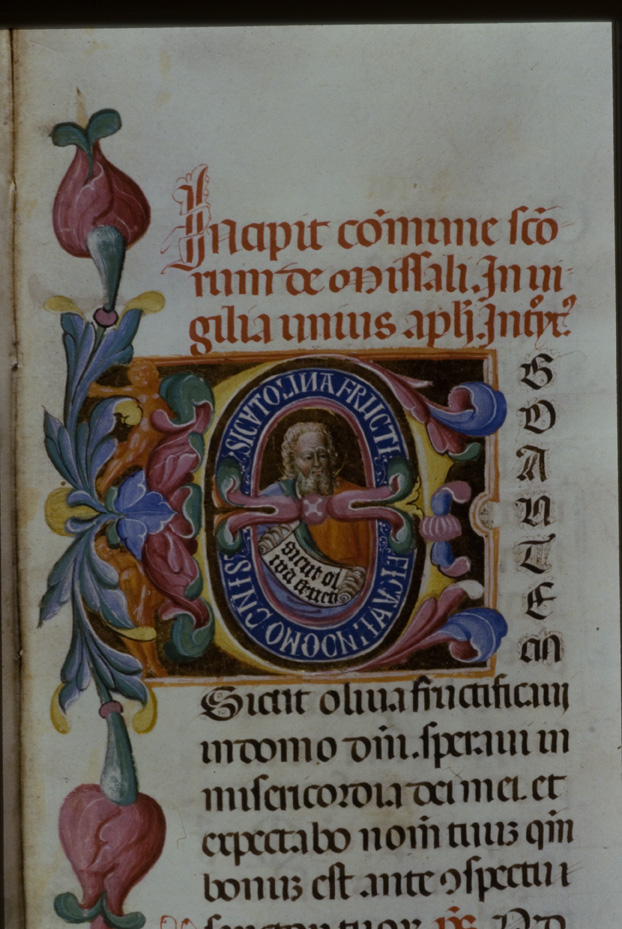 Incipit cõmune scõ
rum de missali. In ui
gilia unius apłi. Introyt.
SICUT OLIVA FRUCTI
FICAVI IN DOMO
sicut ol
iua fructi
E
G
O
A
U
T
E
m
Sicut oliua fructificaui
in domo dñi. speraui in
misericordia dei mei. et
expectabo nom̃ tuuʒ qm̃
bonuʒ est ante ꝯspectu
sanctoꝝ tuoꝝ p̃s.